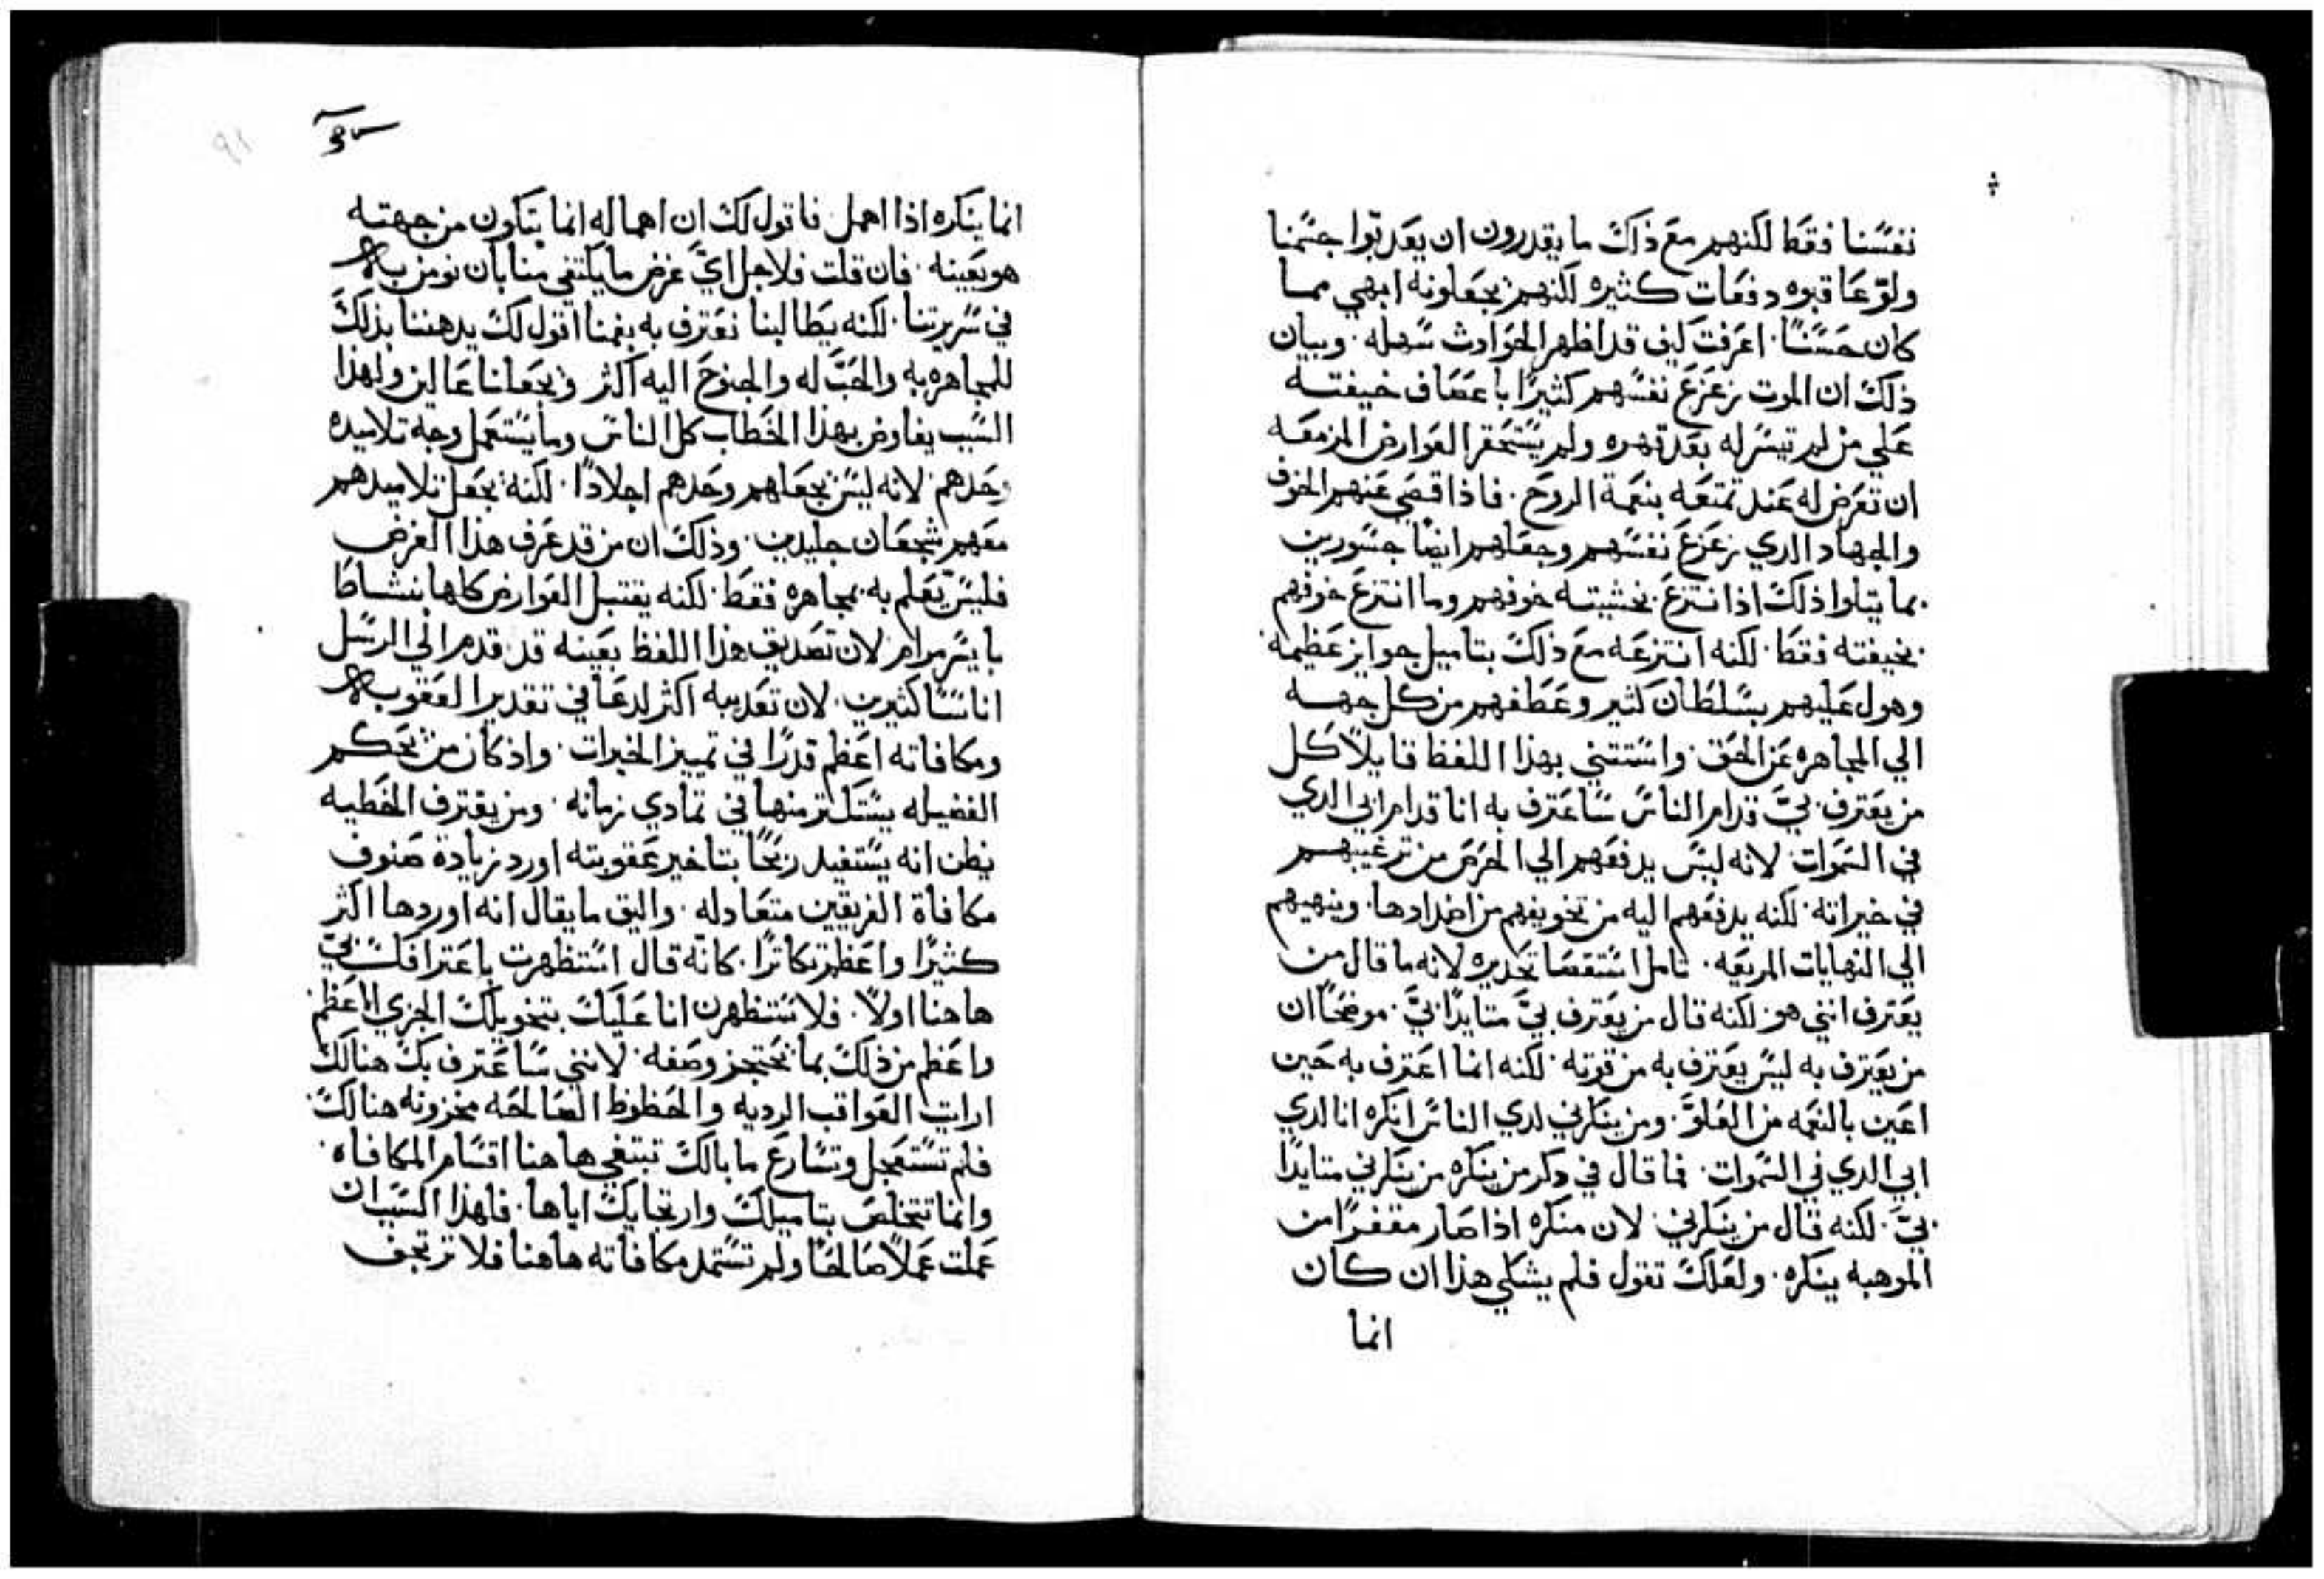 نفسنا فقط لكنهم مع ذلك ما يقدرون ان يعدبوا جسمنا
ولو عاقبوه دفعات كثيره لكنهم يجعلونه ابهي مما
كان حسنا. اعرفت كيف قد اظهر الحوادث سهله. وبيان
ذلك ان الموت زعزع نفسهم كثيرا باعصاف خيفته
علي من لم تيسر له بعد قهره ولم يستحقر العوارض المزمعه
ان تعرض له عند تمتعه بنعمة الروح. فاذا قصي عنهم الخوف
والجهاد الدي زعزع نفسهم وجعلهم ايضا جسورين
بما يتلوا ذلك اذ انتزع بخشيته خوفهم وما انتزع خوفهم
بخيفته فقط. لكنه انتزعه مع ذلك بتاميل جوايز عظيمه
وهول عليهم بسلطان كثير وعطفهم من كل جهه
الي المجاهره عن الحق. واستتني بهذا اللفظ قايلا كل
من يعترف بي قدام الناس ساعترف به انا قدام ابي الدي
في السموات. لانه ليس يدفعهم الي الحرص من ترغيبهم
في خيراته. لكنه يدفعهم اليه من تخويفهم من اضدادها. وينهيهم
الي النهايات المريعه. تامل استقصا تحديره لانه ما قال من
يعترف انني هو لكنه قال من يعترف بي متايدا بي. موضحا ان
من يعترف به ليس يعترف به من قوته. لكنه انما اعترف به حين
اعين بالنعمه من العلو. ومن ينكرني لدي الناس انكره انا لدي
ابي الدي في السموات. فما قال في دكر من ينكره من ينكرني متايدا
بي. لكنه قال من ينكرني. لان منكره اذا صار مقفرا من
الموهبه ينكره. ولعلك تقول فلم يشكي هذا ان كان
انما
انما ينكره اذا اهمل. فاقول لك ان اهماله انما يتكون من جهته
هو بعينه. فان قلت فلاجل اي غرض ما يكتفي منا بان نومن به
في سريرتنا. لكنه يطالبنا نعترف به بفمنا اقول لك يدهننا بذلك
للمجاهره به والحب له والجنوح اليه اكثر ويجعلنا عالين ولهذا
السبب يفاوض بهذا الخطاب كل الناس وما يستعمل وجه تلاميده
وحدهم. لانه ليس يجعلهم وحدهم اجلادا. لكنه يجعل تلاميدهم
معهم شجعان جليدين. وذلك ان من قد عرف هذا الغرض
فليس يعلم به بمجاهره فقط. لكنه يقتبل العوارض كلها بنشاط
بايسر مرام. لان تصديق هذا اللفظ بعينه قد قدم الي الرسل
اناسا كثيرين. لان تعديبه اكثر لدعا في تقدير العقوبه
ومكافاته اعظم قدرا في تمييز الخيرات. واذ كان من يحكم
الفضيله يستكثر منها في تمادي زمانه. ومن يقترف الخطيه
يظن انه يستفيد ربحا بتاخير عقوبته اورد زيادة صنوف
مكافاة الفريقين متعادله. واليق ما يقال انه اوردها اكثر
كثيرا واعظم تكاثرا. كانه قال استظهرت باعترافك بي
هاهنا اولا. فلاستظهرن انا عليك بتخويلك الجزي الاعظم
واعظم من ذلك بما يحتجز وصفه. لانني ساعترف بك هنالك
ارايت العواقب الرديه والحظوظ الصالحه مخزونه هنالك.
فلم تستعجل وتسارع ما بالك تبتغي هاهنا اقسام المكافاه.
وانما تتخلص بتاميلك وارتجايك اياها. فلهذا السبب ان
عملت عملا صالحا ولم تستمد مكافاته هاهنا فلا ترتجف